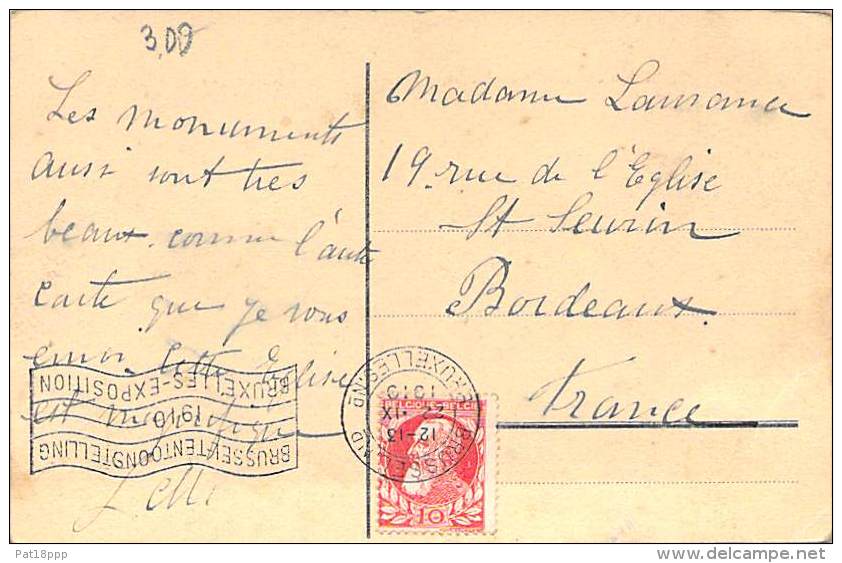 3,00
Les monuments
aussi sont très
beaux. comme l'autre
carte que je vous
envoi cette Eglise
est magnifique
Madame Laurance
19. rue de l'Eglise
St Seurin
Bordeaux.
France
BRUXELLES-EXPOSITION
1910
BRUSSEL-TENTOONSTELLING
BRUXELLES
1910
IX
12-13
BELGIQUE·BELGIË
10
Pat18ppp
delcampe.net